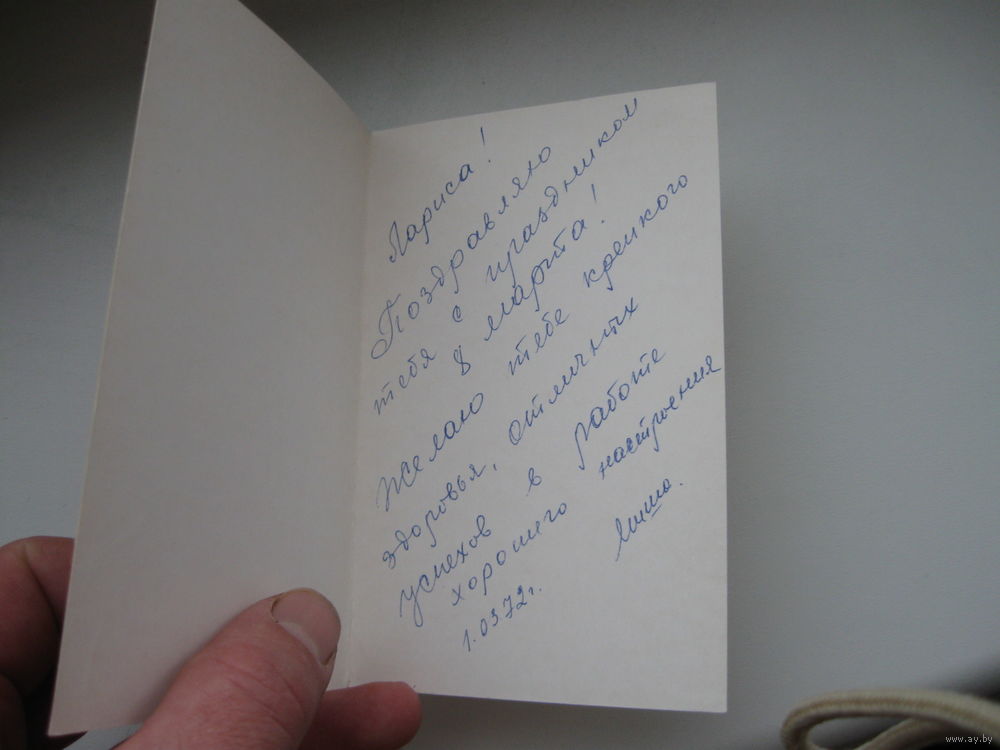 Лариса!
Поздравляю
тебя с праздником
8 марта!
Желаю тебе крепкого
здоровья, отличных
успехов в работе
хорошего настроения
Миша.
1.03.72г.
www.ay.by